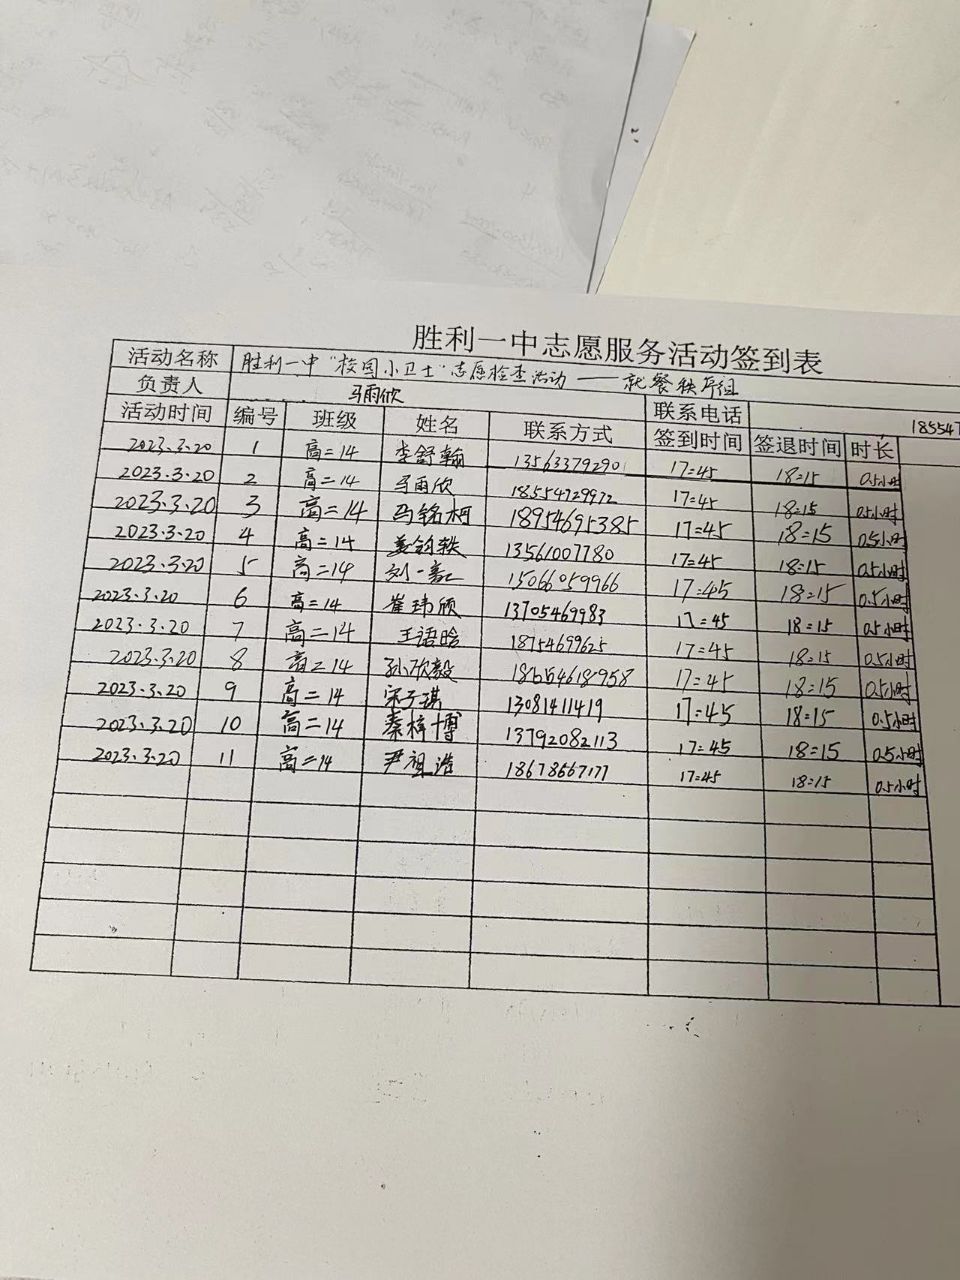 胜利一中志愿服务活动签到表
活动名称 胜利一中"校园小卫士"志愿检查活动——就餐秩序组
负责人 马雨欣 联系电话 185547
活动时间 编号 班级 姓名 联系方式 签到时间 签退时间 时长
2023.3.20 1 高二14 李舒翰 13563379290 17:45 18:15 0.5小时
2023.3.20 2 高二14 马雨欣 18554729972 17:45 18:15 0.5小时
2023.3.20 3 高二14 马铭柯 18954695385 17:45 18:15 0.5小时
2023.3.20 4 高二14 13561007780 17:45 18:15 0.5小时
2023.3.20 5 高二14 15066059966 17:45 18:15 0.5小时
2023.3.20 6 高二14 崔玮颀 13705469983 17:45 18:15 0.5小时
2023.3.20 7 高二14 王语晗 18754699625 17:45 18:15 0.5小时
2023.3.20 8 高二14 孙欣毅 17:45 18:15 0.5小时
2023.3.20 9 高二14 宋子琪 13081411419 17:45 18:15 0.5小时
2023.3.20 10 高二14 秦梓博 13792082113 17:45 18:15 0.5小时
2023.3.20 11 高二14 尹祖浩 18678667177 17:45 18:15 0.5小时